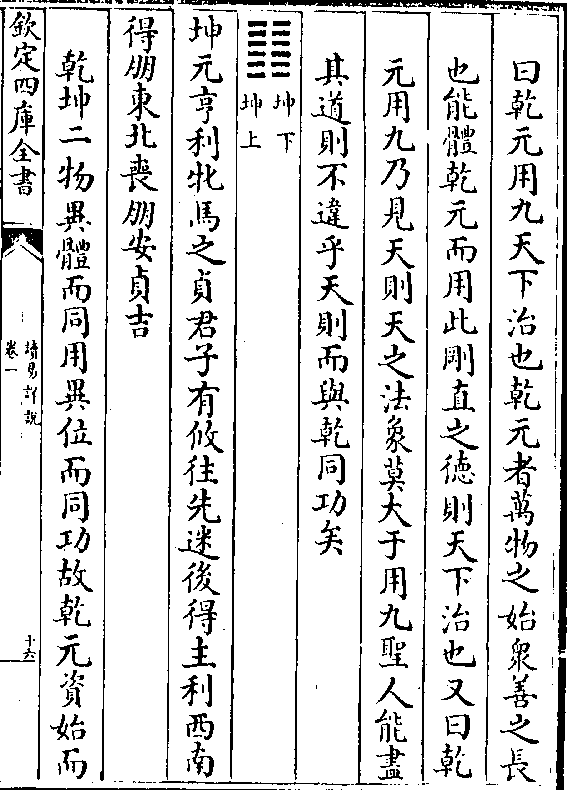 曰乾元用九天下治也乾元者萬物之始衆善之長
也能體乾元而用此剛直之德則天下治也又曰乾
元用九乃見天則天之法象莫大于用九聖人能盡
其道則不違乎天則而與乾同功矣
坤下
坤上
坤元亨利牝馬之貞君子有攸往先迷後得主利西南
得朋東北喪朋安貞吉
乾坤二物異體而同用異位而同功故乾元資始而
欽定四庫全書
讀易詳說
卷一
十六